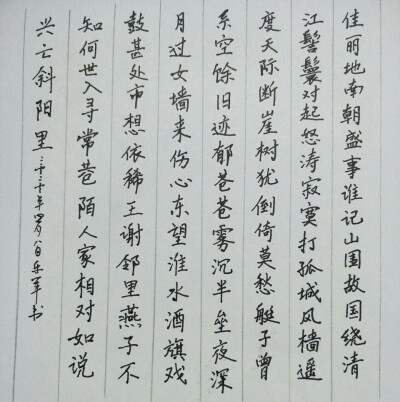 佳丽地南朝盛事谁记山围故国绕清
江髻鬟对起怒涛寂寞打孤城风樯遥
度天际断崖树犹倒倚莫愁艇子曾
系空馀旧迹郁苍苍雾沉半垒夜深
月过女墙来伤心东望淮水酒旗戏
鼓甚处市想依稀王谢邻里燕子不
知何世入寻常巷陌人家相对如说
兴亡斜阳里 年 乐军书